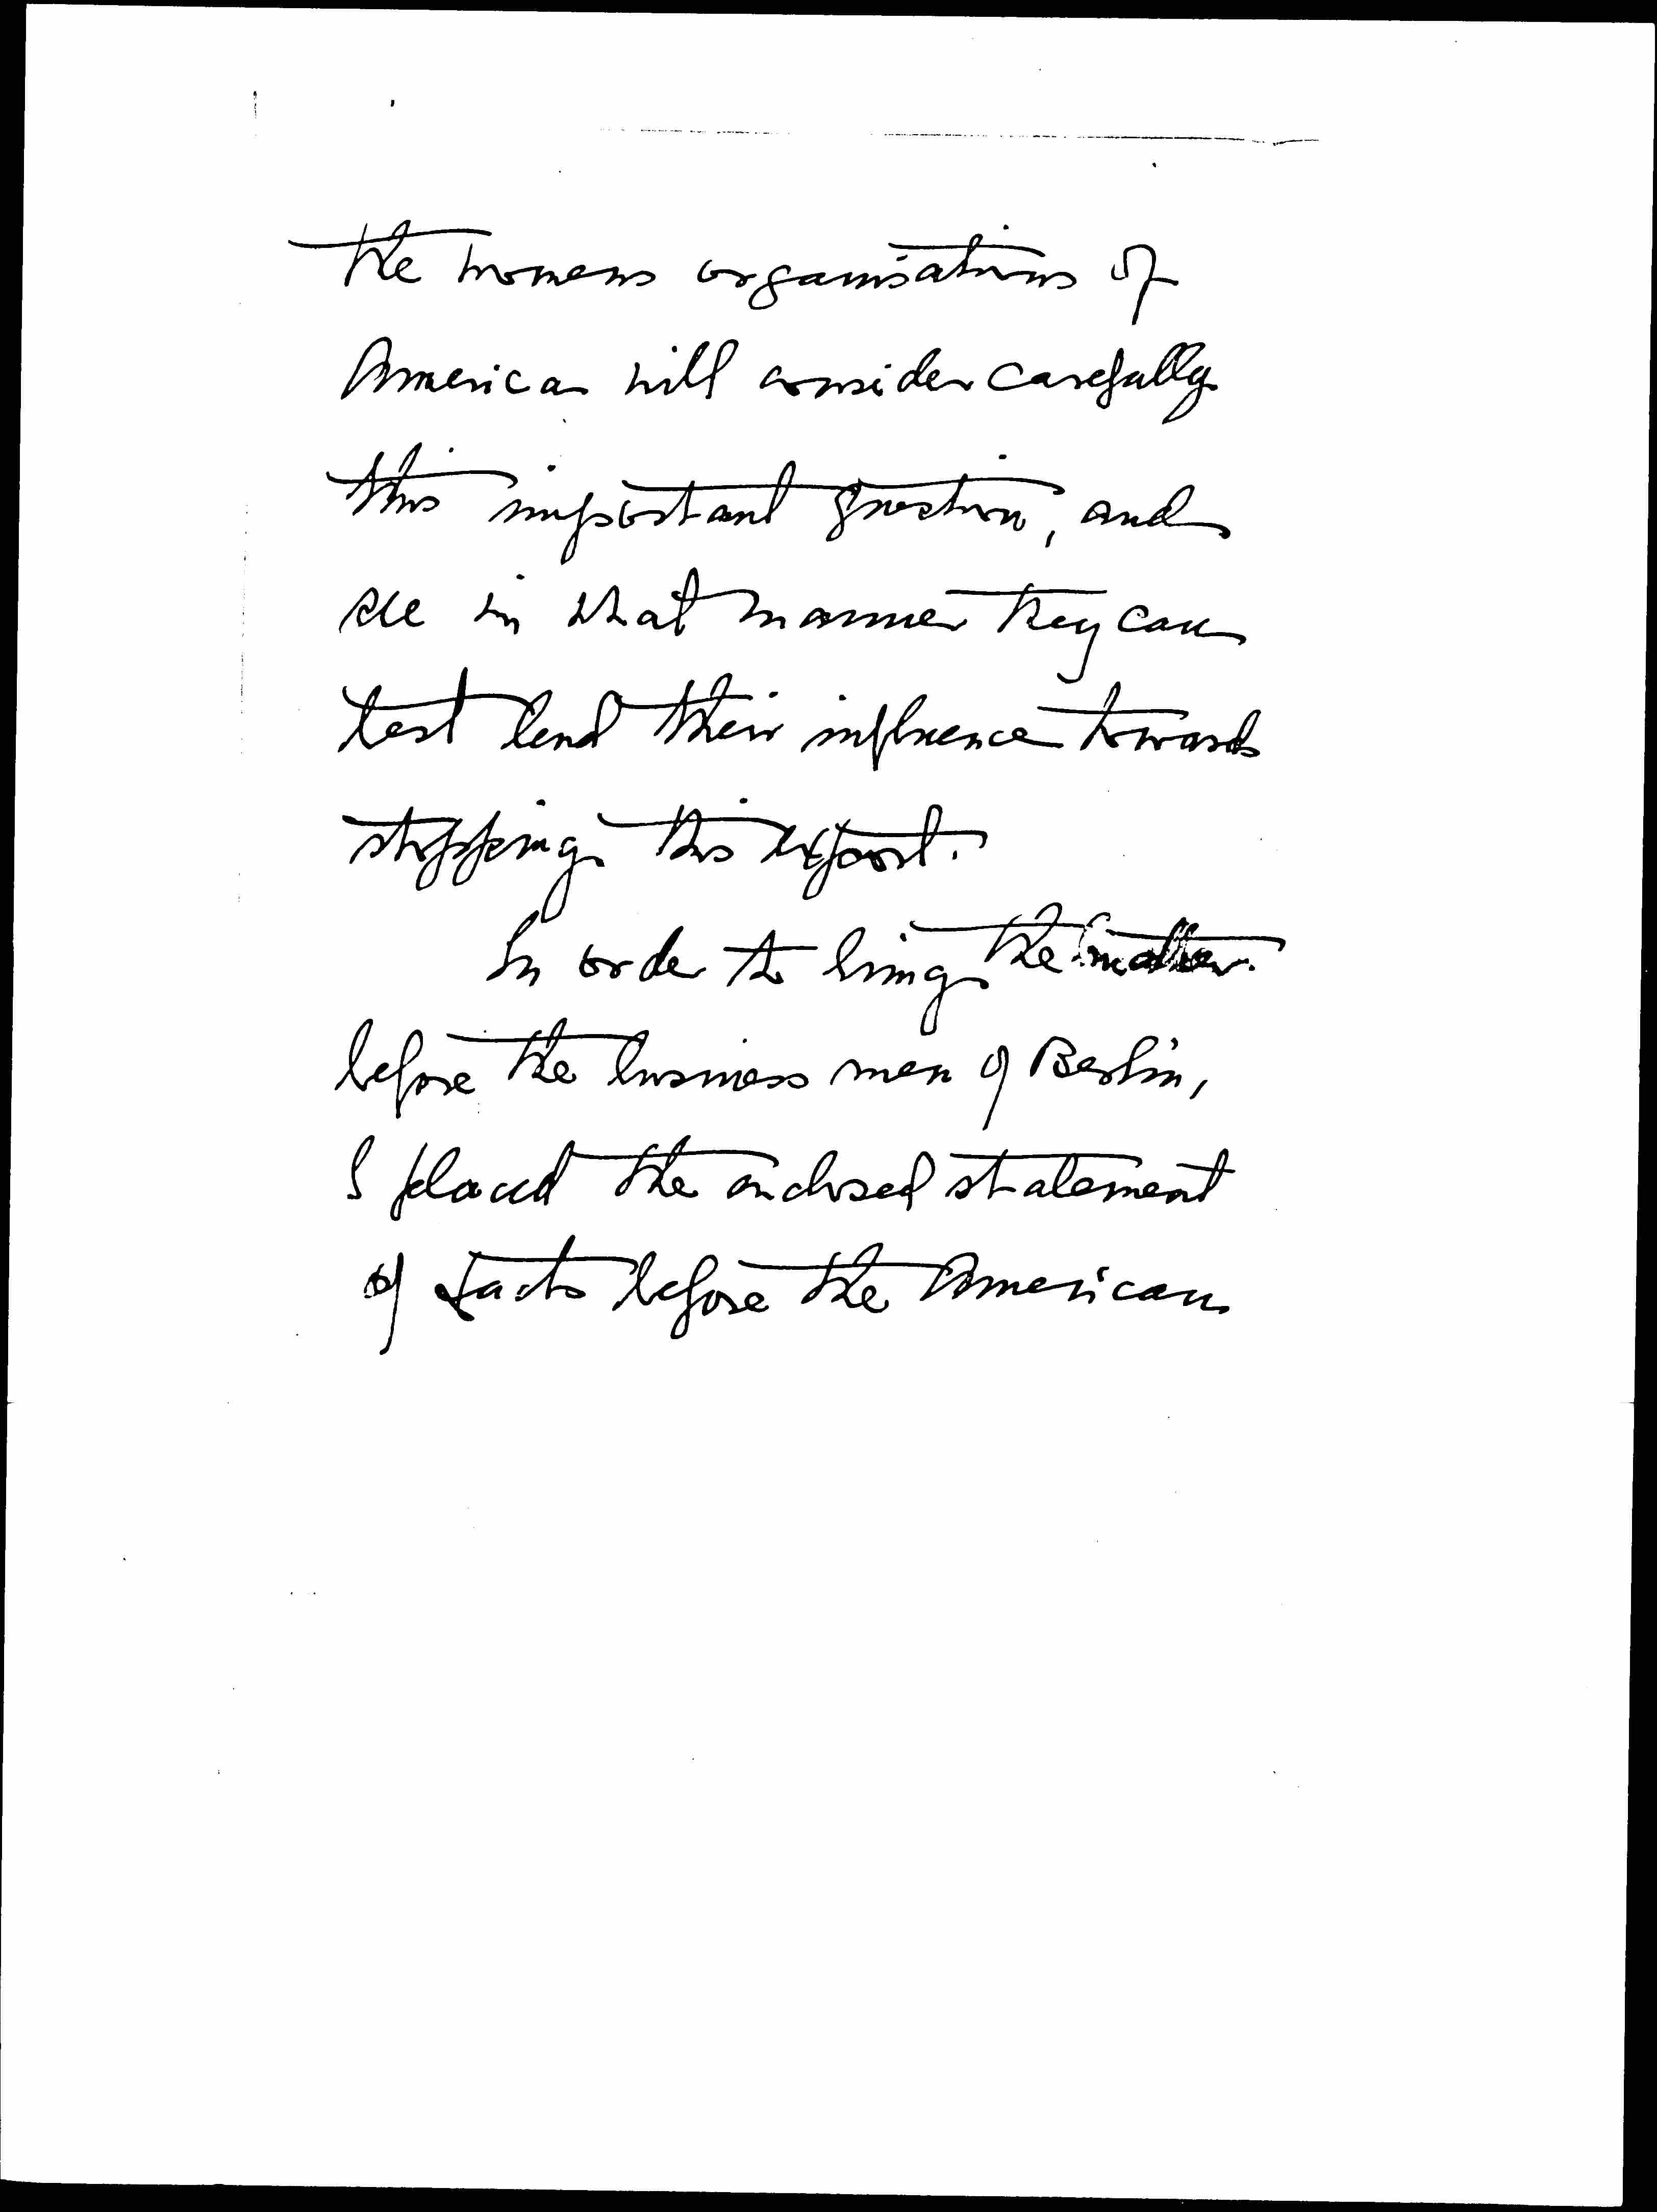 the womens organisations of
America will consider carefully
this important question, and
see in what manner they can
best lend their influence towards
stopping this export.
In order to bring the matter
before the business men of Berlin,
I placed the enclosed statement
of facts before the American